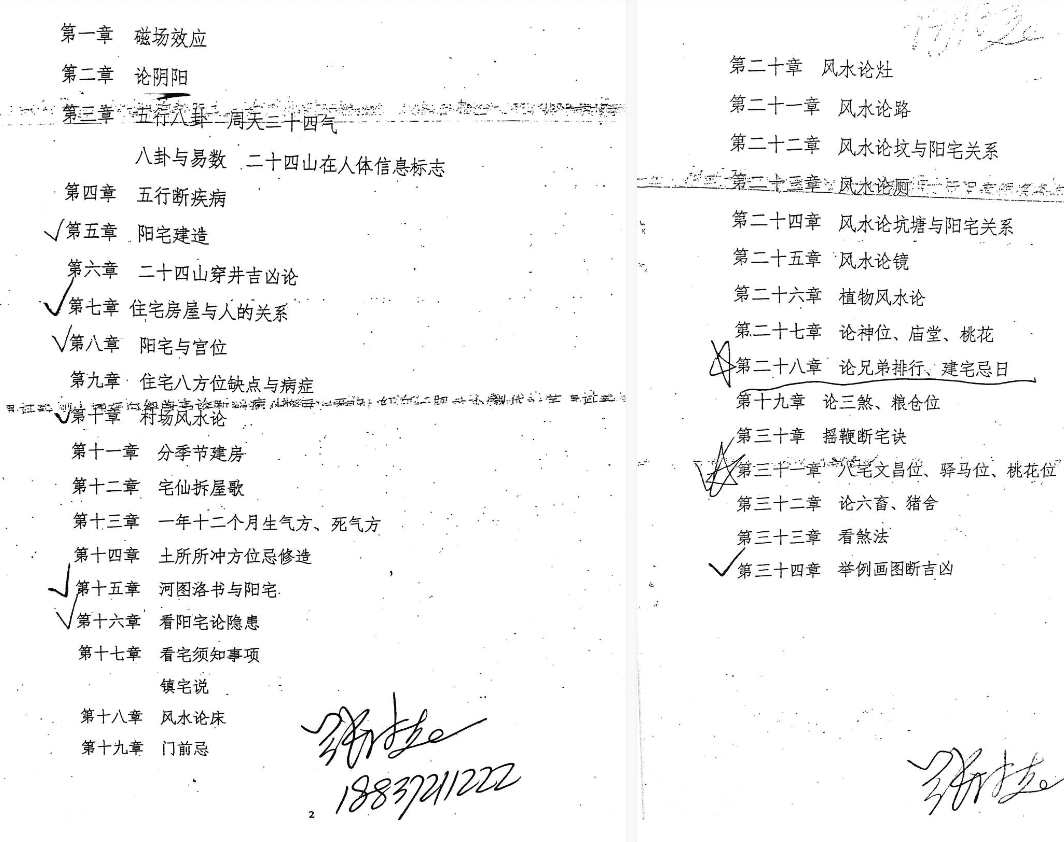 第一章 磁场效应
第二章 论阴阳
第三章 五行八卦一周天三十四气
八卦与易数 二十四山在人体信息标志
第四章 五行断疾病
第五章 阳宅建造
第六章 二十四山穿井吉凶论
第七章 住宅房屋与人的关系
第八章 阳宅与宫位
第九章 住宅八方位缺点与病症
第十章 村场风水论
第十一章 分季节建房
第十二章 宅仙拆屋歌
第十三章 一年十二个月生气方、死气方
第十四章 土所所冲方位忌修造
第十五章 河图洛书与阳宅
第十六章 看阳宅论隐患
第十七章 看宅须知事项
镇宅说
第十八章 风水论床
第十九章 门前忌
18837211222
2
第二十章 风水论灶
第二十一章 风水论路
第二十二章 风水论坟与阳宅关系
第二十三章 风水论厕
第二十四章 风水论坑塘与阳宅关系
第二十五章 风水论镜
第二十六章 植物风水论
第二十七章 论神位、庙堂、桃花
第二十八章 论兄弟排行、建宅忌日
第十九章 论三煞、粮仓位
第三十章 摇鞭断宅诀
第三十一章 八宅文昌位、驿马位、桃花位
第三十二章 论六畜、猪舍
第三十三章 看煞法
第三十四章 举例画图断吉凶